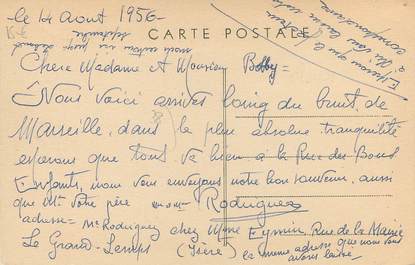 le 14 Aout 1956-
CARTE POSTALE
Chere Madame et Monsieur Bobby=
Nous voici arrivés loing du bruit de
Marseille, dans la plus absolue tranquilité
esperons que tout va bien à la Rue des Bons
Enfants, nous vous envoyons notre bon souvenir, aussi
que Mr votre père Rodriguez
adresse= Mr Rodriguez chez Mme Eymin, Rue de la Mairie
Le Grand-Lemps (Isère) la meme adresse que nous vous
avons laissée